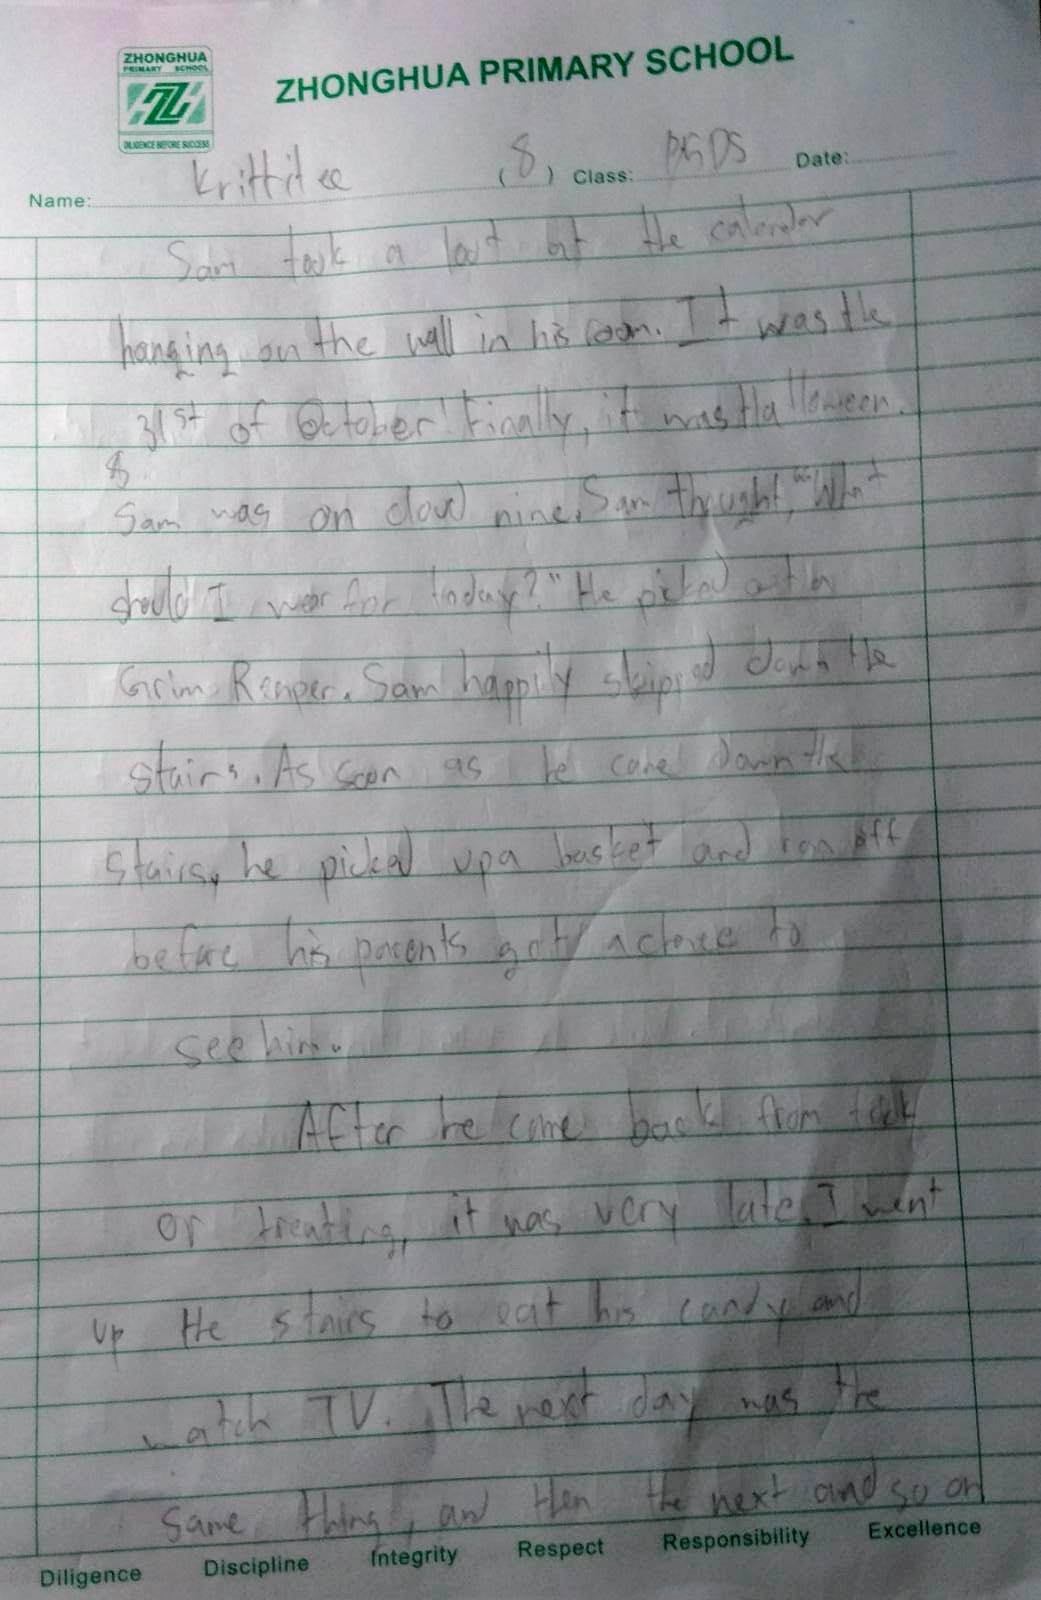 ZHONGHUA
PRIMARY SCHOOL
DILIGENCE BEFORE SUCCESS
ZHONGHUA PRIMARY SCHOOL
Name: Krittitee (8) Class: Date:
Sam took a look at the calendar
hanging on the wall in his room. It was the
31st of October! Finally, it was Halloween.
8
Sam was on cloud nine. Sam thought, "What
should I wear for today?" He picked out a
Grim Reaper. Sam happily skipped down the
stairs. As soon as he came down the
stairs, he picked up a basket and ran off
before his parents got a chance to
see him.
After he came back from trick
or treating, it was very late. I went
up the stairs to eat his candy and
watch TV. The next day was the
same thing, and then the next and so on
Diligence Discipline Integrity Respect Responsibility Excellence